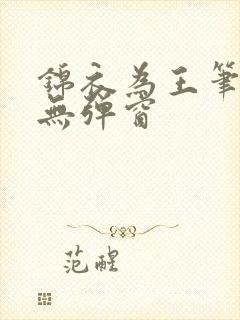 錦衣為王筆
無彈窗
范醒